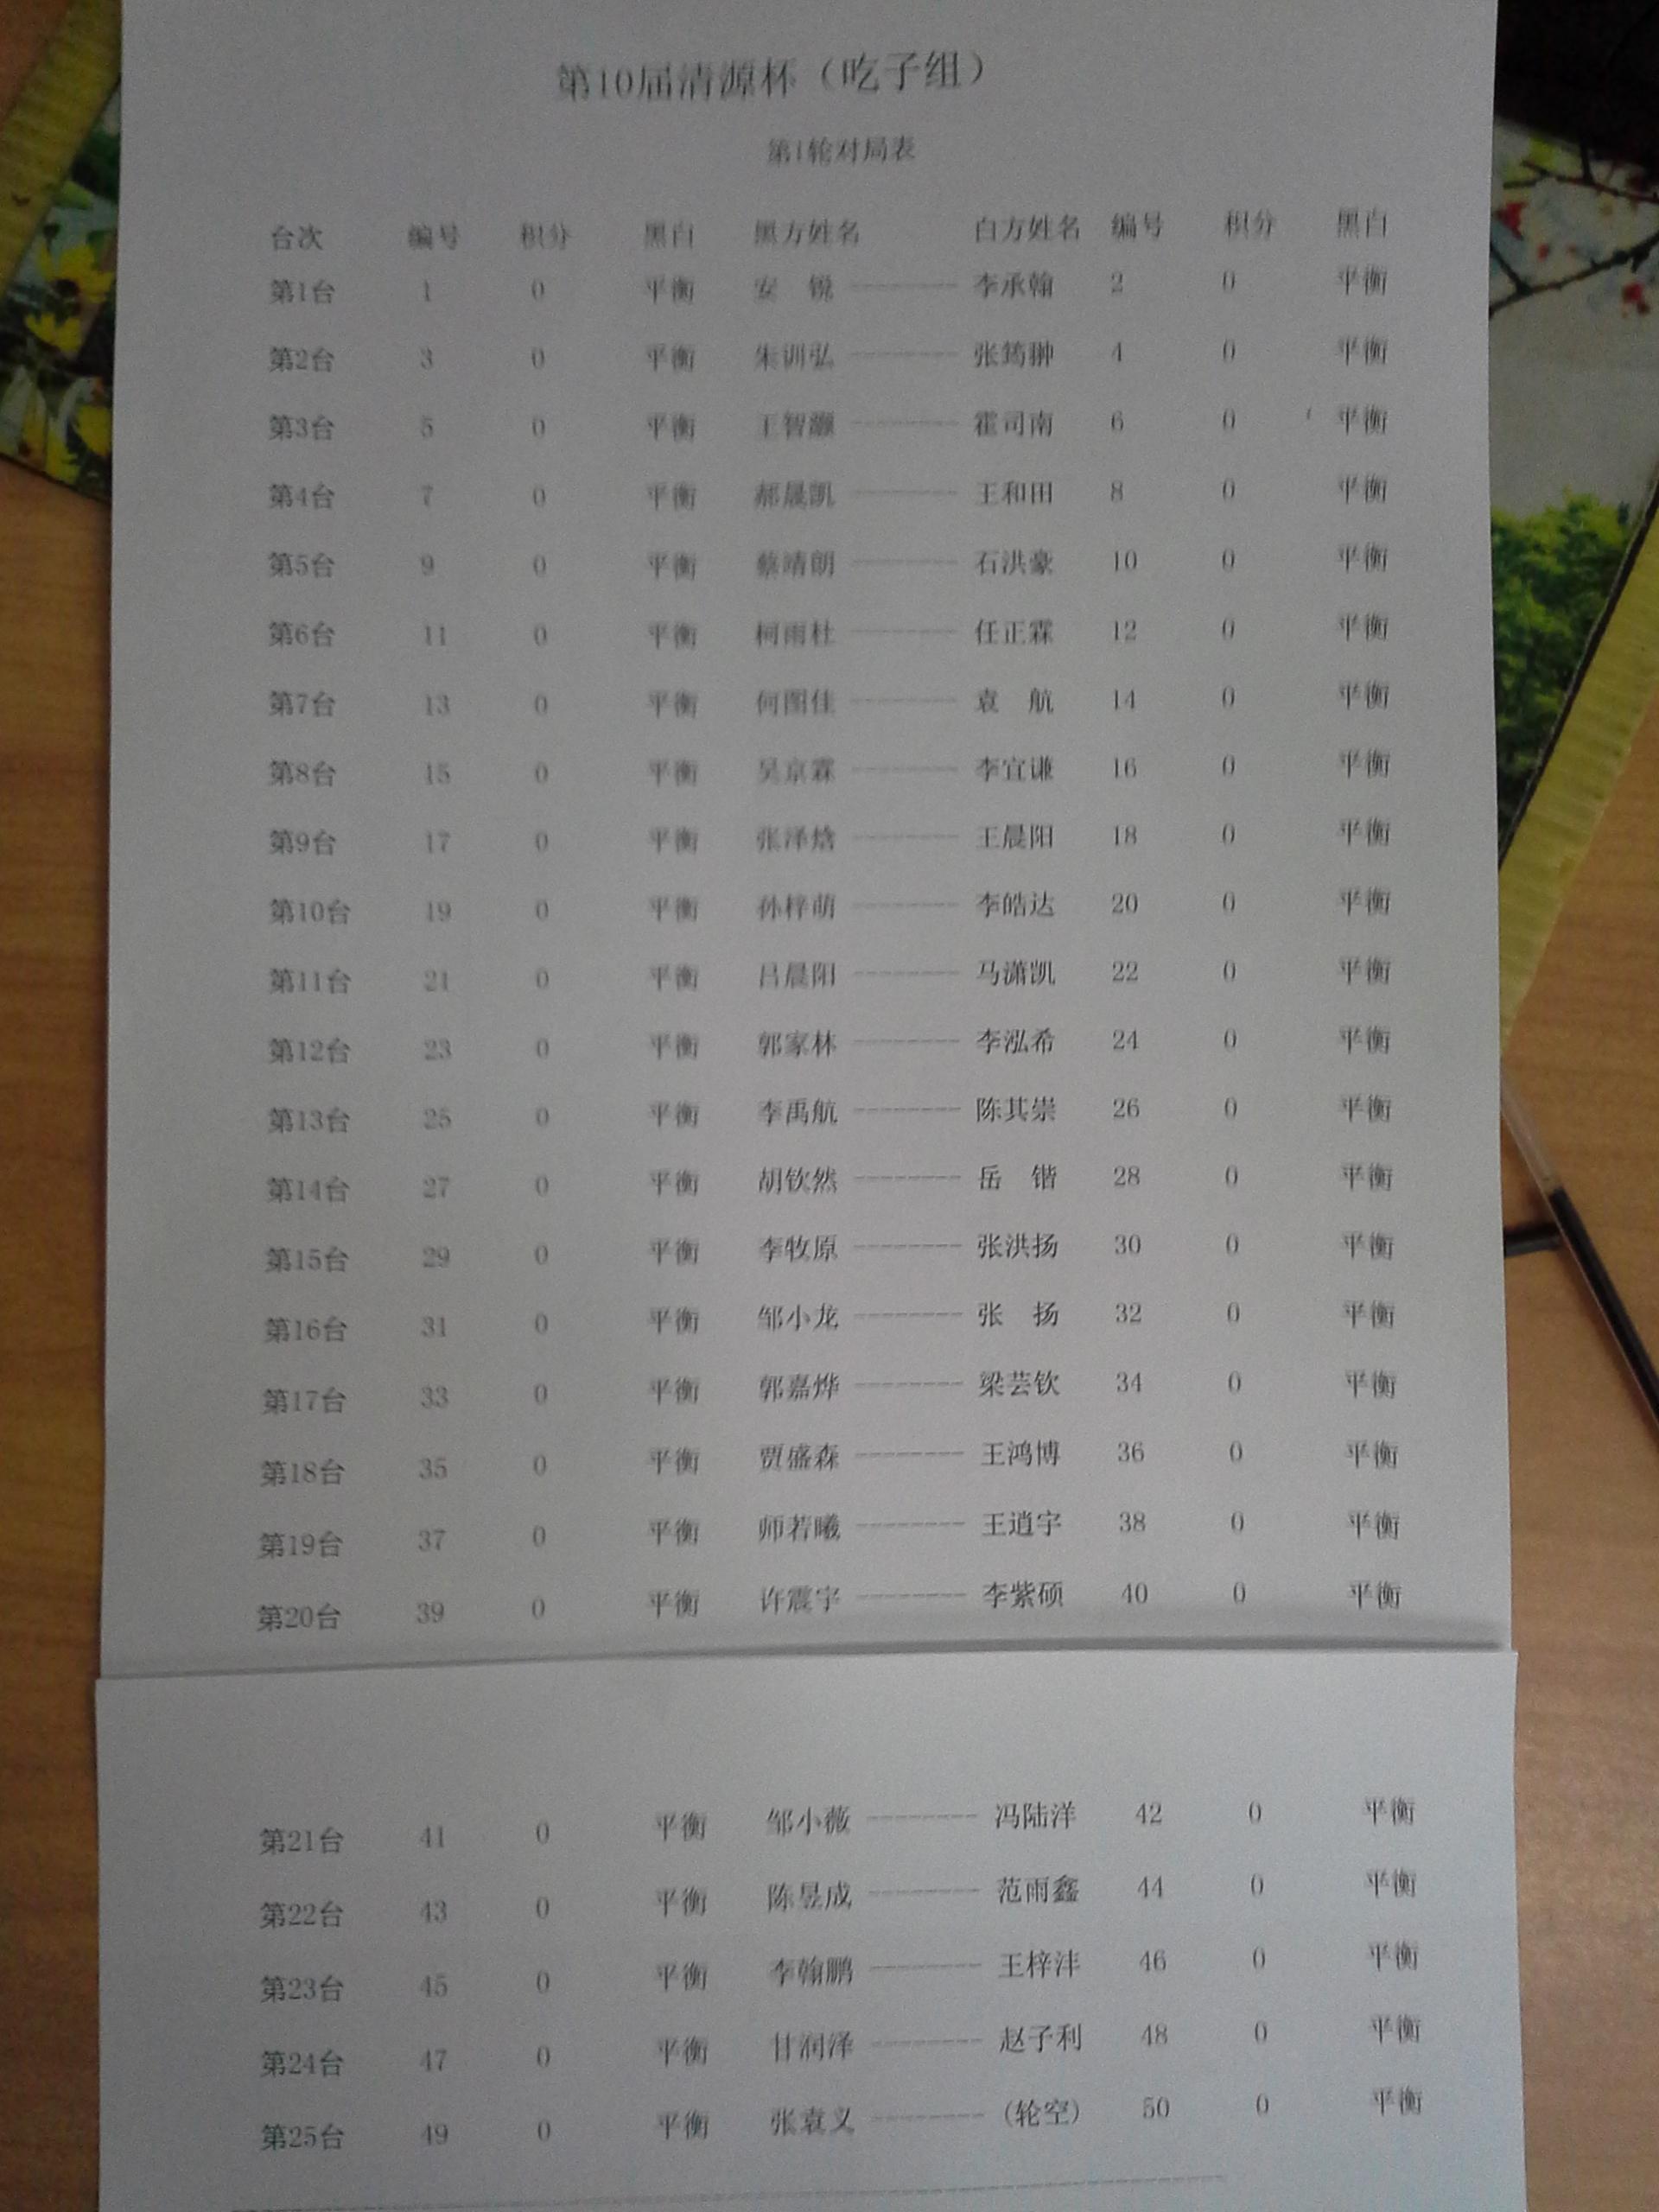 第10届清源杯（吃子组）
第1轮对局表
台次 编号 积分 黑白 黑方姓名 白方姓名 编号 积分 黑白
第1台 1 0 平衡 安 锐 -------- 李承翰 2 0 平衡
第2台 3 0 平衡 朱训弘 -------- 张筠翀 4 0 平衡
第3台 5 0 平衡 王智灏 -------- 霍司南 6 0 平衡
第4台 7 0 平衡 郝晟凯 -------- 王和田 8 0 平衡
第5台 9 0 平衡 蔡靖朗 -------- 石洪豪 10 0 平衡
第6台 11 0 平衡 柯雨杜 -------- 任正霖 12 0 平衡
第7台 13 0 平衡 何图佳 -------- 袁 航 14 0 平衡
第8台 15 0 平衡 吴京霖 -------- 李宜谦 16 0 平衡
第9台 17 0 平衡 张泽焓 -------- 王晨阳 18 0 平衡
第10台 19 0 平衡 孙梓萌 -------- 李皓达 20 0 平衡
第11台 21 0 平衡 吕晨阳 -------- 马潇凯 22 0 平衡
第12台 23 0 平衡 郭家林 -------- 李泓希 24 0 平衡
第13台 25 0 平衡 李禹航 -------- 陈其崇 26 0 平衡
第14台 27 0 平衡 胡钦然 -------- 岳 锴 28 0 平衡
第15台 29 0 平衡 李牧原 -------- 张洪扬 30 0 平衡
第16台 31 0 平衡 邹小龙 -------- 张 扬 32 0 平衡
第17台 33 0 平衡 郭嘉烨 -------- 梁芸钦 34 0 平衡
第18台 35 0 平衡 贾盛森 -------- 王鸿博 36 0 平衡
第19台 37 0 平衡 师若曦 -------- 王逍宇 38 0 平衡
第20台 39 0 平衡 许震宇 -------- 李紫硕 40 0 平衡
第21台 41 0 平衡 邹小薇 -------- 冯陆洋 42 0 平衡
第22台 43 0 平衡 陈昱成 -------- 范雨鑫 44 0 平衡
第23台 45 0 平衡 李翰鹏 -------- 王梓沣 46 0 平衡
第24台 47 0 平衡 甘润泽 -------- 赵子利 48 0 平衡
第25台 49 0 平衡 张袁义 -------- (轮空) 50 0 平衡